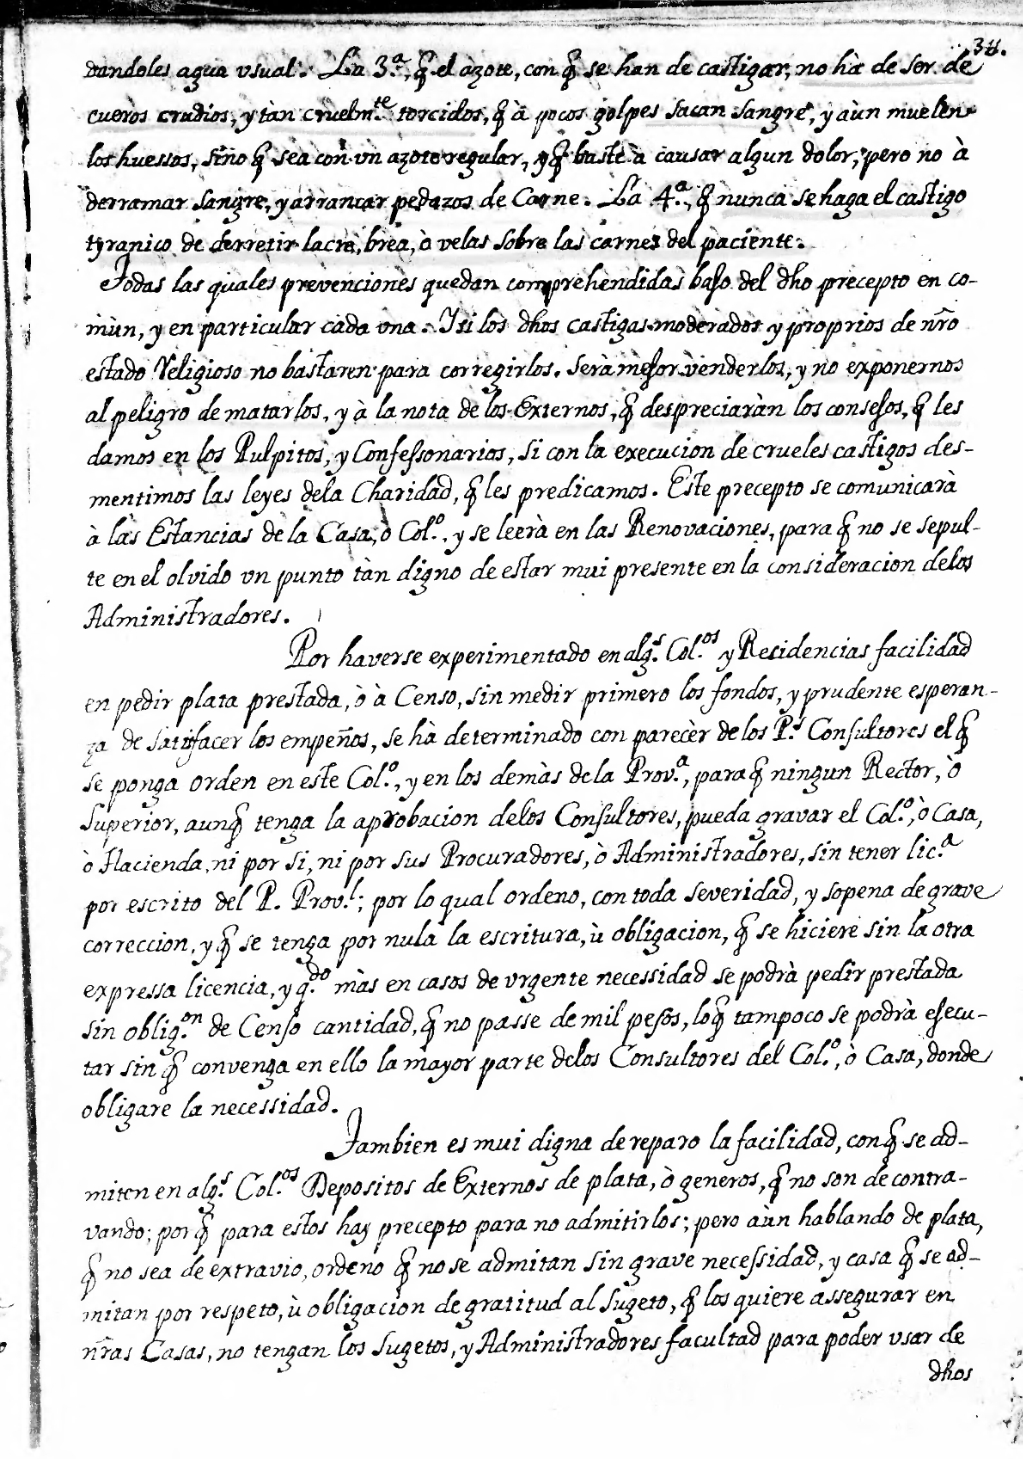 38.
dandoles agua usual. La 3.ª, q̃ el azote, con q̃ se han de castigar, no hà de ser de
cueros crudios, y tàn cruelm.te torcidos, q̃ à pocos golpes sacan sangre, y aùn muelen
los huessos, sino q̃ sea con un azote regular, q̃ baste à causar algun dolor, pero no à
derramar sangre, y arrancar pedazos de Carne. La 4.ª, q̃ nunca se haga el castigo
tyranico de derretir lacre, brea, ò velas sobre las carnes del paciente.
Todas las quales prevenciones quedan comprehendidas baso del dho precepto en co-
mùn, y en particular cada una. Y si los dhos castigos moderados y proprios de nr̃o
estado Religioso no bastaren para corregirlos, serà mesor venderlos, y no exponernos
al peligro de matarlos, y à la nota de los Externos, q̃ despreciaràn los consesos, q̃ les
damos en los Pulpitos, y Confessonarios, si con la execucion de crueles castigos des-
mentimos las leyes dela Charidad, q̃ les predicamos. Este precepto se comunicarà
à las Estancias de la Casa, ò Col.º, y se leerà en las Renovaciones, para q̃ no se sepul-
te en el olvido un punto tàn digno de estar mui presente en la consideracion delos
Administradores.
Por haverse experimentado en alg.s Col.os y Residencias facilidad
en pedir plata prestada, ò à Censo, sin medir primero los fondos, y prudente esperan-
za de satisfacer los empeños, se hà determinado con parecèr de los P.s Consultores el q̃
se ponga orden en este Col.º, y en los demàs dela Prov.ª, para q̃ ningun Rector, ò
Superior, aunq̃ tenga la aprobacion delos Consultores, pueda gravar el Col.º, ò Casa,
ò Hacienda, ni por si, ni por sus Procuradores, ò Administradores, sin tener lic.ª
por escrito del P. Prov.l; por lo qual ordeno, con toda severidad, y sopena de grave
correccion, y q̃ se tenga por nula la escritura, ù obligacion, q̃ se hiciere sin la otra
expressa licencia, y q.do màs en casos de urgente necessidad se podrà pedir prestada
sin oblig.on de Censo cantidad, q̃ no passe de mil pesos, loq̃ tampoco se podrà esecu-
tar sin q̃ convenga en ello la mayor parte delos Consultores del Col.º, ò Casa, donde
obligare la necessidad.
Tambien es mui digna de reparo la facilidad, conq̃ se ad-
miten en alg.s Col.os Depositos de Externos de plata, ò generos, q̃ no son de contra-
vando; por q̃ para estos hay precepto para no admitirlos; pero aùn hablando de plata,
q̃ no sea de extravio, ordeno q̃ no se admitan sin grave necessidad, y casa q̃ se ad-
mitan por respeto, ù obligacion de gratitud al Sugeto, q̃ los quiere assegurar en
nr̃as Casas, no tengan los Sugetos, y Administradores facultad para poder usar de
dhos